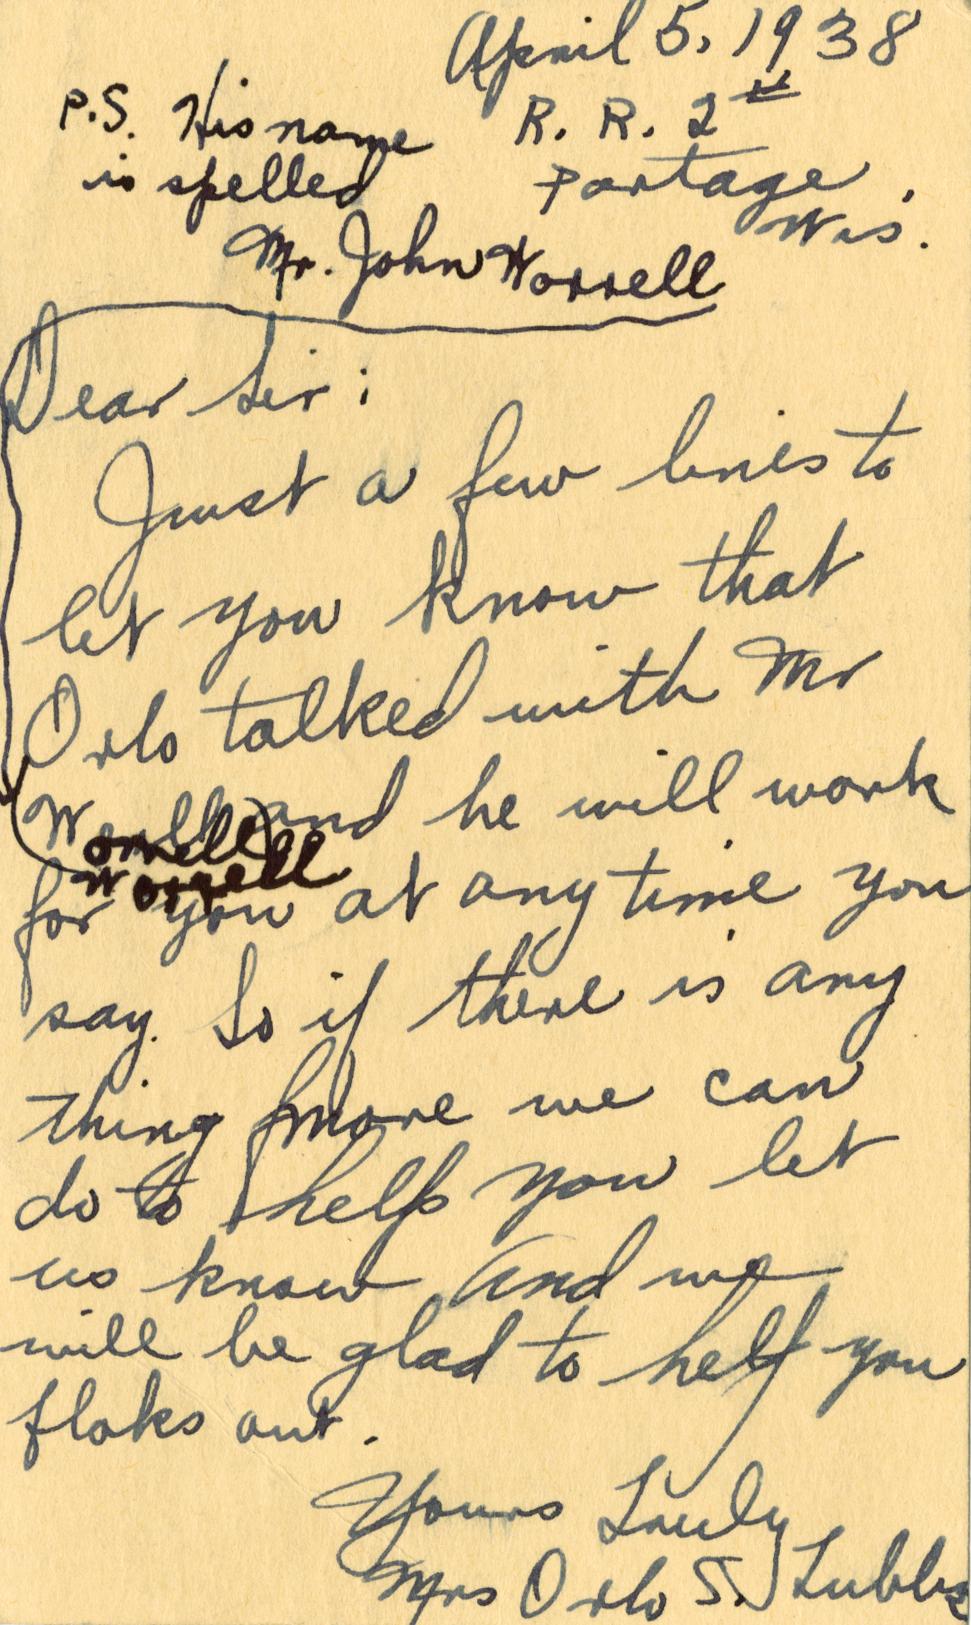 April 5, 1938
R. R. 2
Portage,
Wis.
P.S. His name
is spelled
Mr. John Worrell
Dear Sir:
Just a few lines to
let you know that
Orlo talked with Mr
Worrell and he will work
Worrell
for you at anytime you
say. So if there is any
thing more we can
do to help you let
us know and we
will be glad to help you
floks out.
Yours Truly
Mrs Orlo S. Lubbs